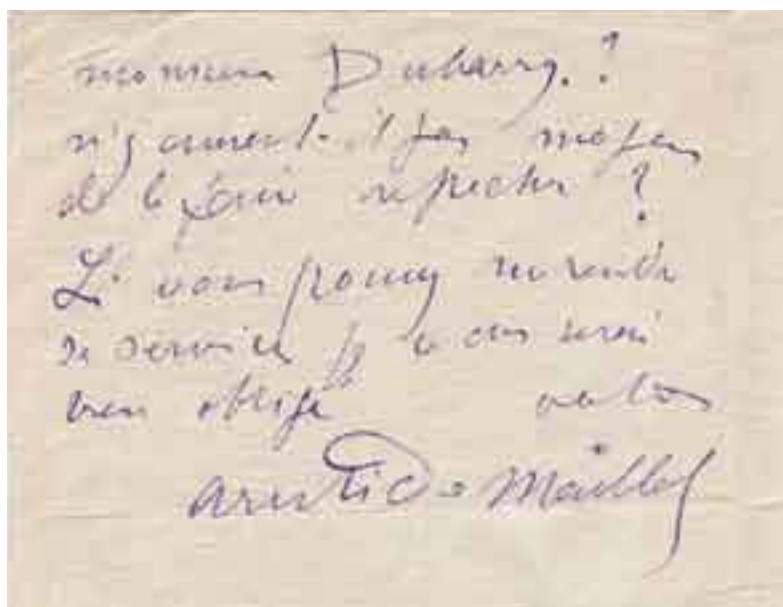 monsieur Dubarry. ?
n'y aurait-il pas moyen
de le faire repecher ?
Si vous pouvez me rendre
ce service je vous serai
bien obligé votre
Aristide Maillol